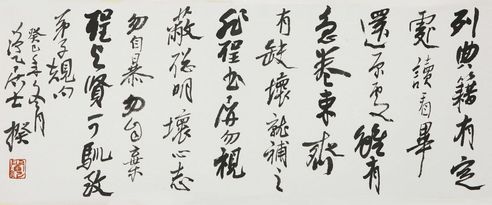 列典籍有定
處讀看畢
還原處雖有
急卷束齊
有缺壞就補之
非聖書屏勿視
蔽聰明壞心志
勿自暴勿自棄
聖与賢可馴致
弟子規句
癸巳年月
居士